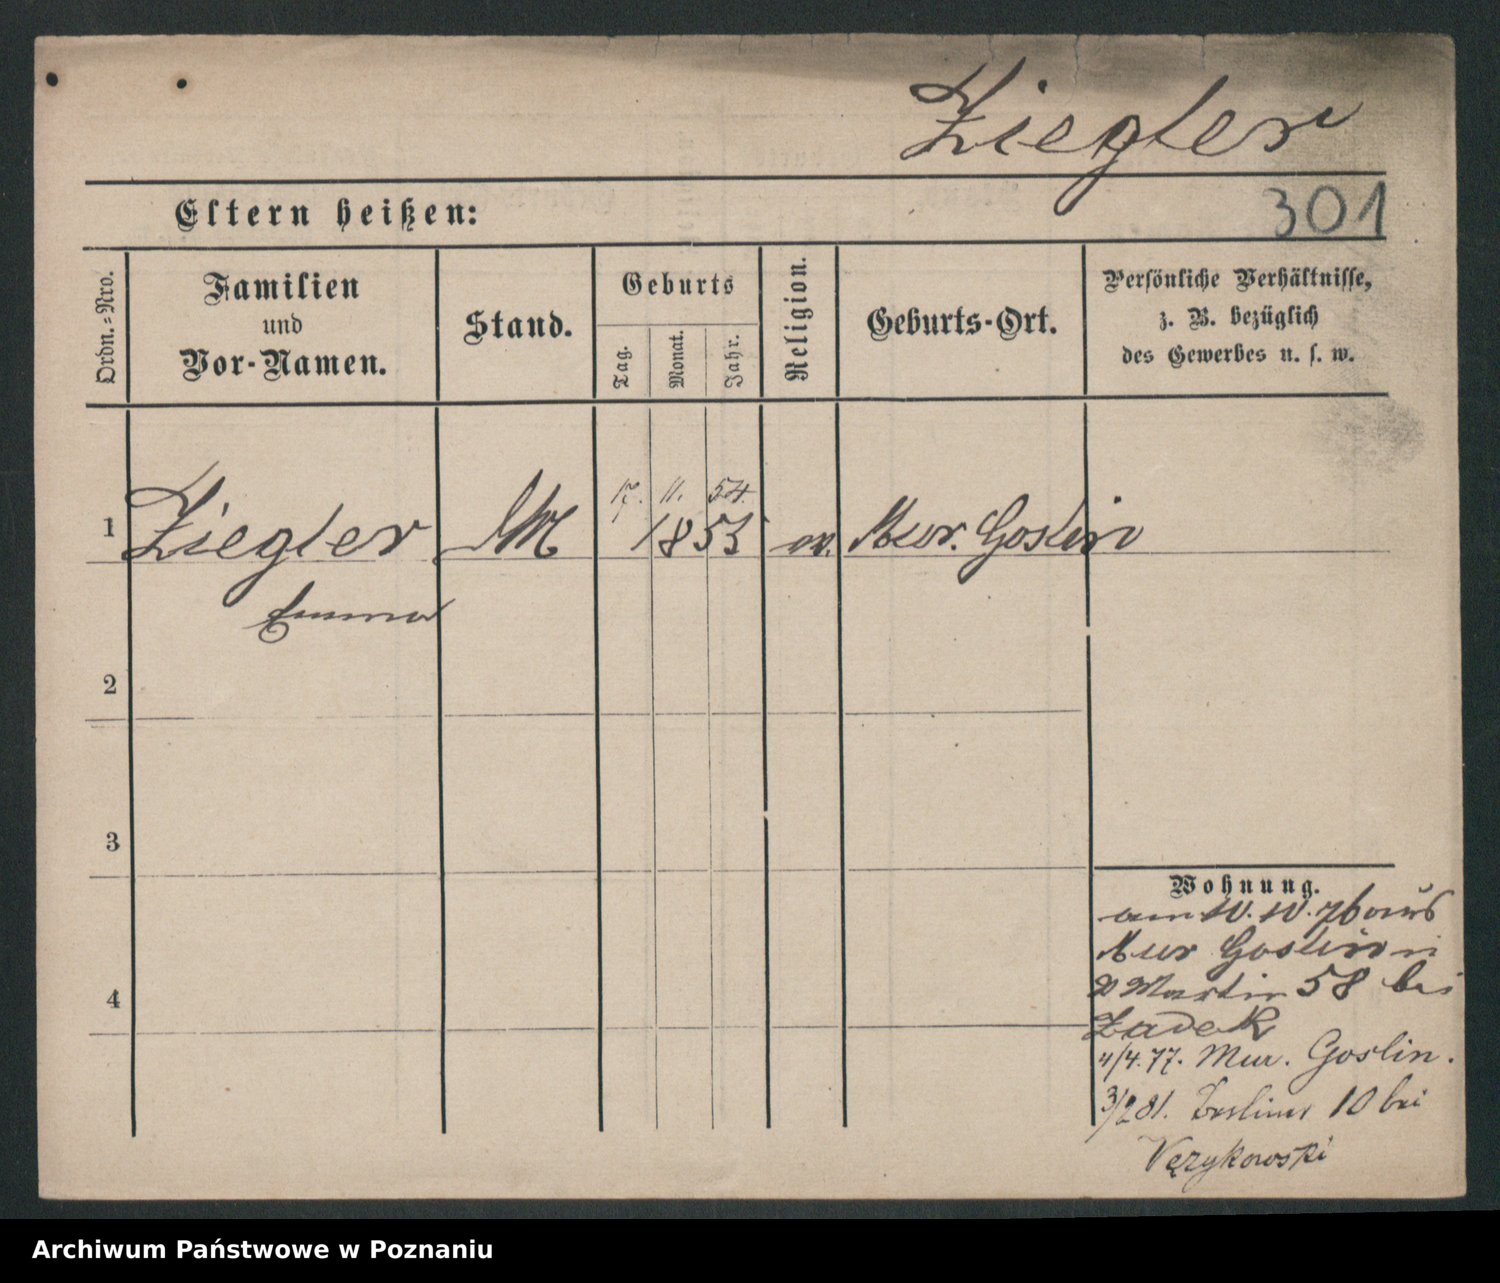 Ziegler
Eltern heißen:
301
Ordn.=Nro.
Familien
und
Vor-Namen.
Stand.
Geburts
Tag.
Monat.
Jahr.
Religion.
Geburts-Ort.
Persönliche Verhältnisse,
z. B. bezüglich
des Gewerbes u. s. w.
17. 11. 54.
1 Ziegler 1853 ev. Mur. Goslin
Emma
2
3
4
Wohnung.
am 10. 10. 76 aus
Mur Goslin
Martin 58 bei
Zadek
4/4.77. Mur. Goslin.
3/2 81. Berliner 10 bei
Węzykowski
Archiwum Państwowe w Poznaniu